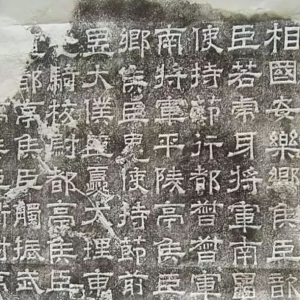 相國安樂鄉侯臣歆
臣若虎牙將軍南昌
使持節行都督督軍
南將軍平陵亭侯臣
鄉侯臣晃使持節前
昱大僕臣夔大理東
騎校尉都亭侯臣
都亭侯臣觸振武